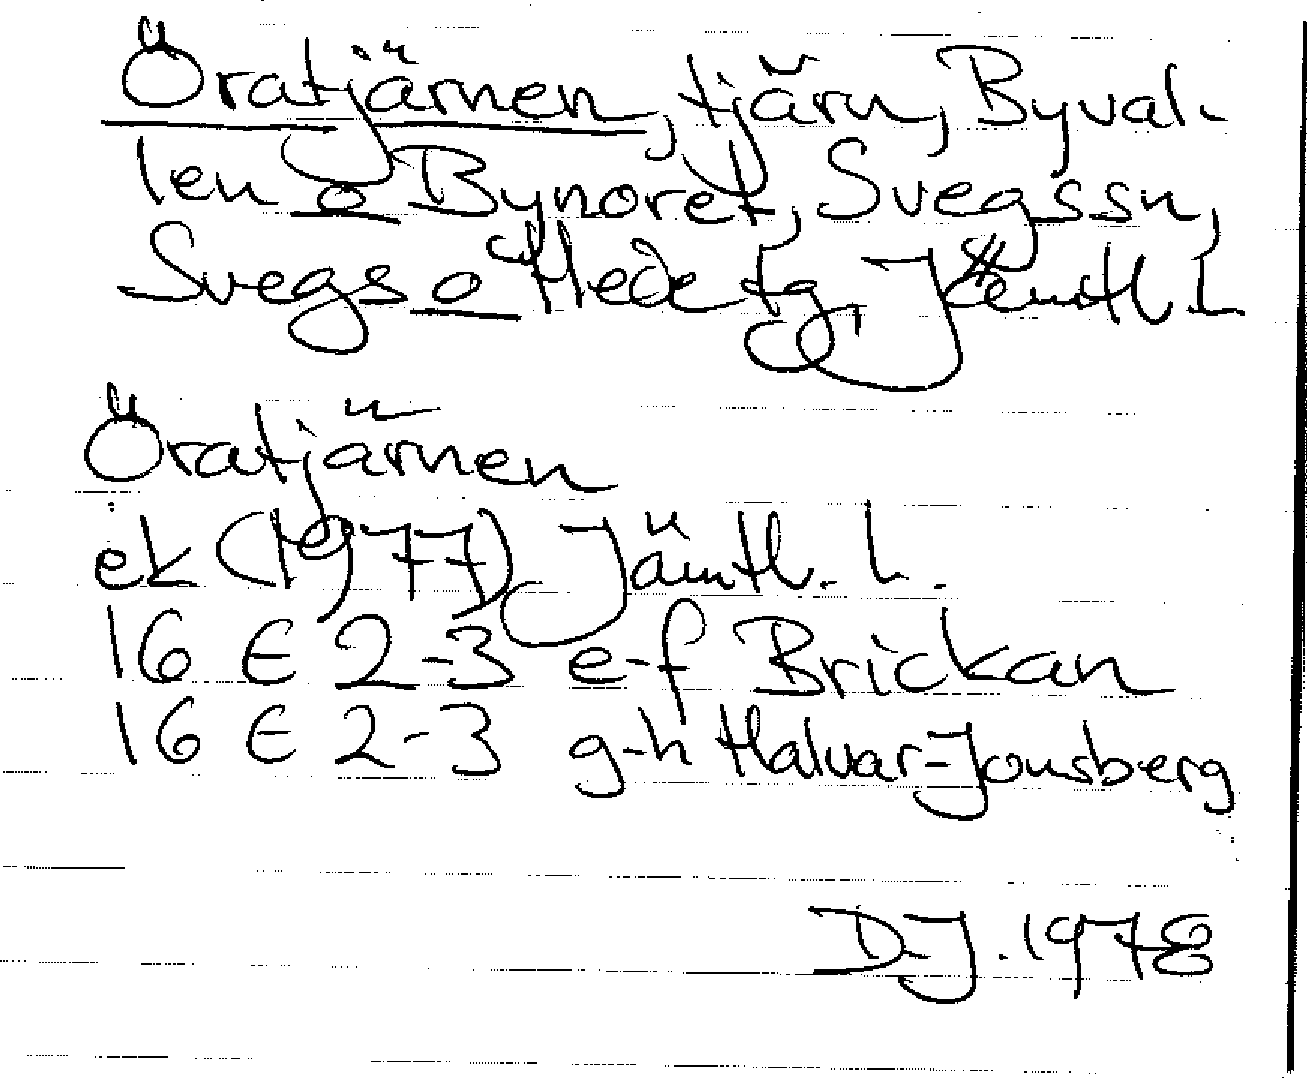 Öratjärnen, tjärn, Byval-
len o Bynoret, Svegssn,
Svegs o Hede tg, Jämtl. L
Öratjärnen
ek (1977) Jämtl. L.
16 E 2-3 e-f Brickan
16 E 2-3 g-h Halvar-Jonsberg
D-J. 1978